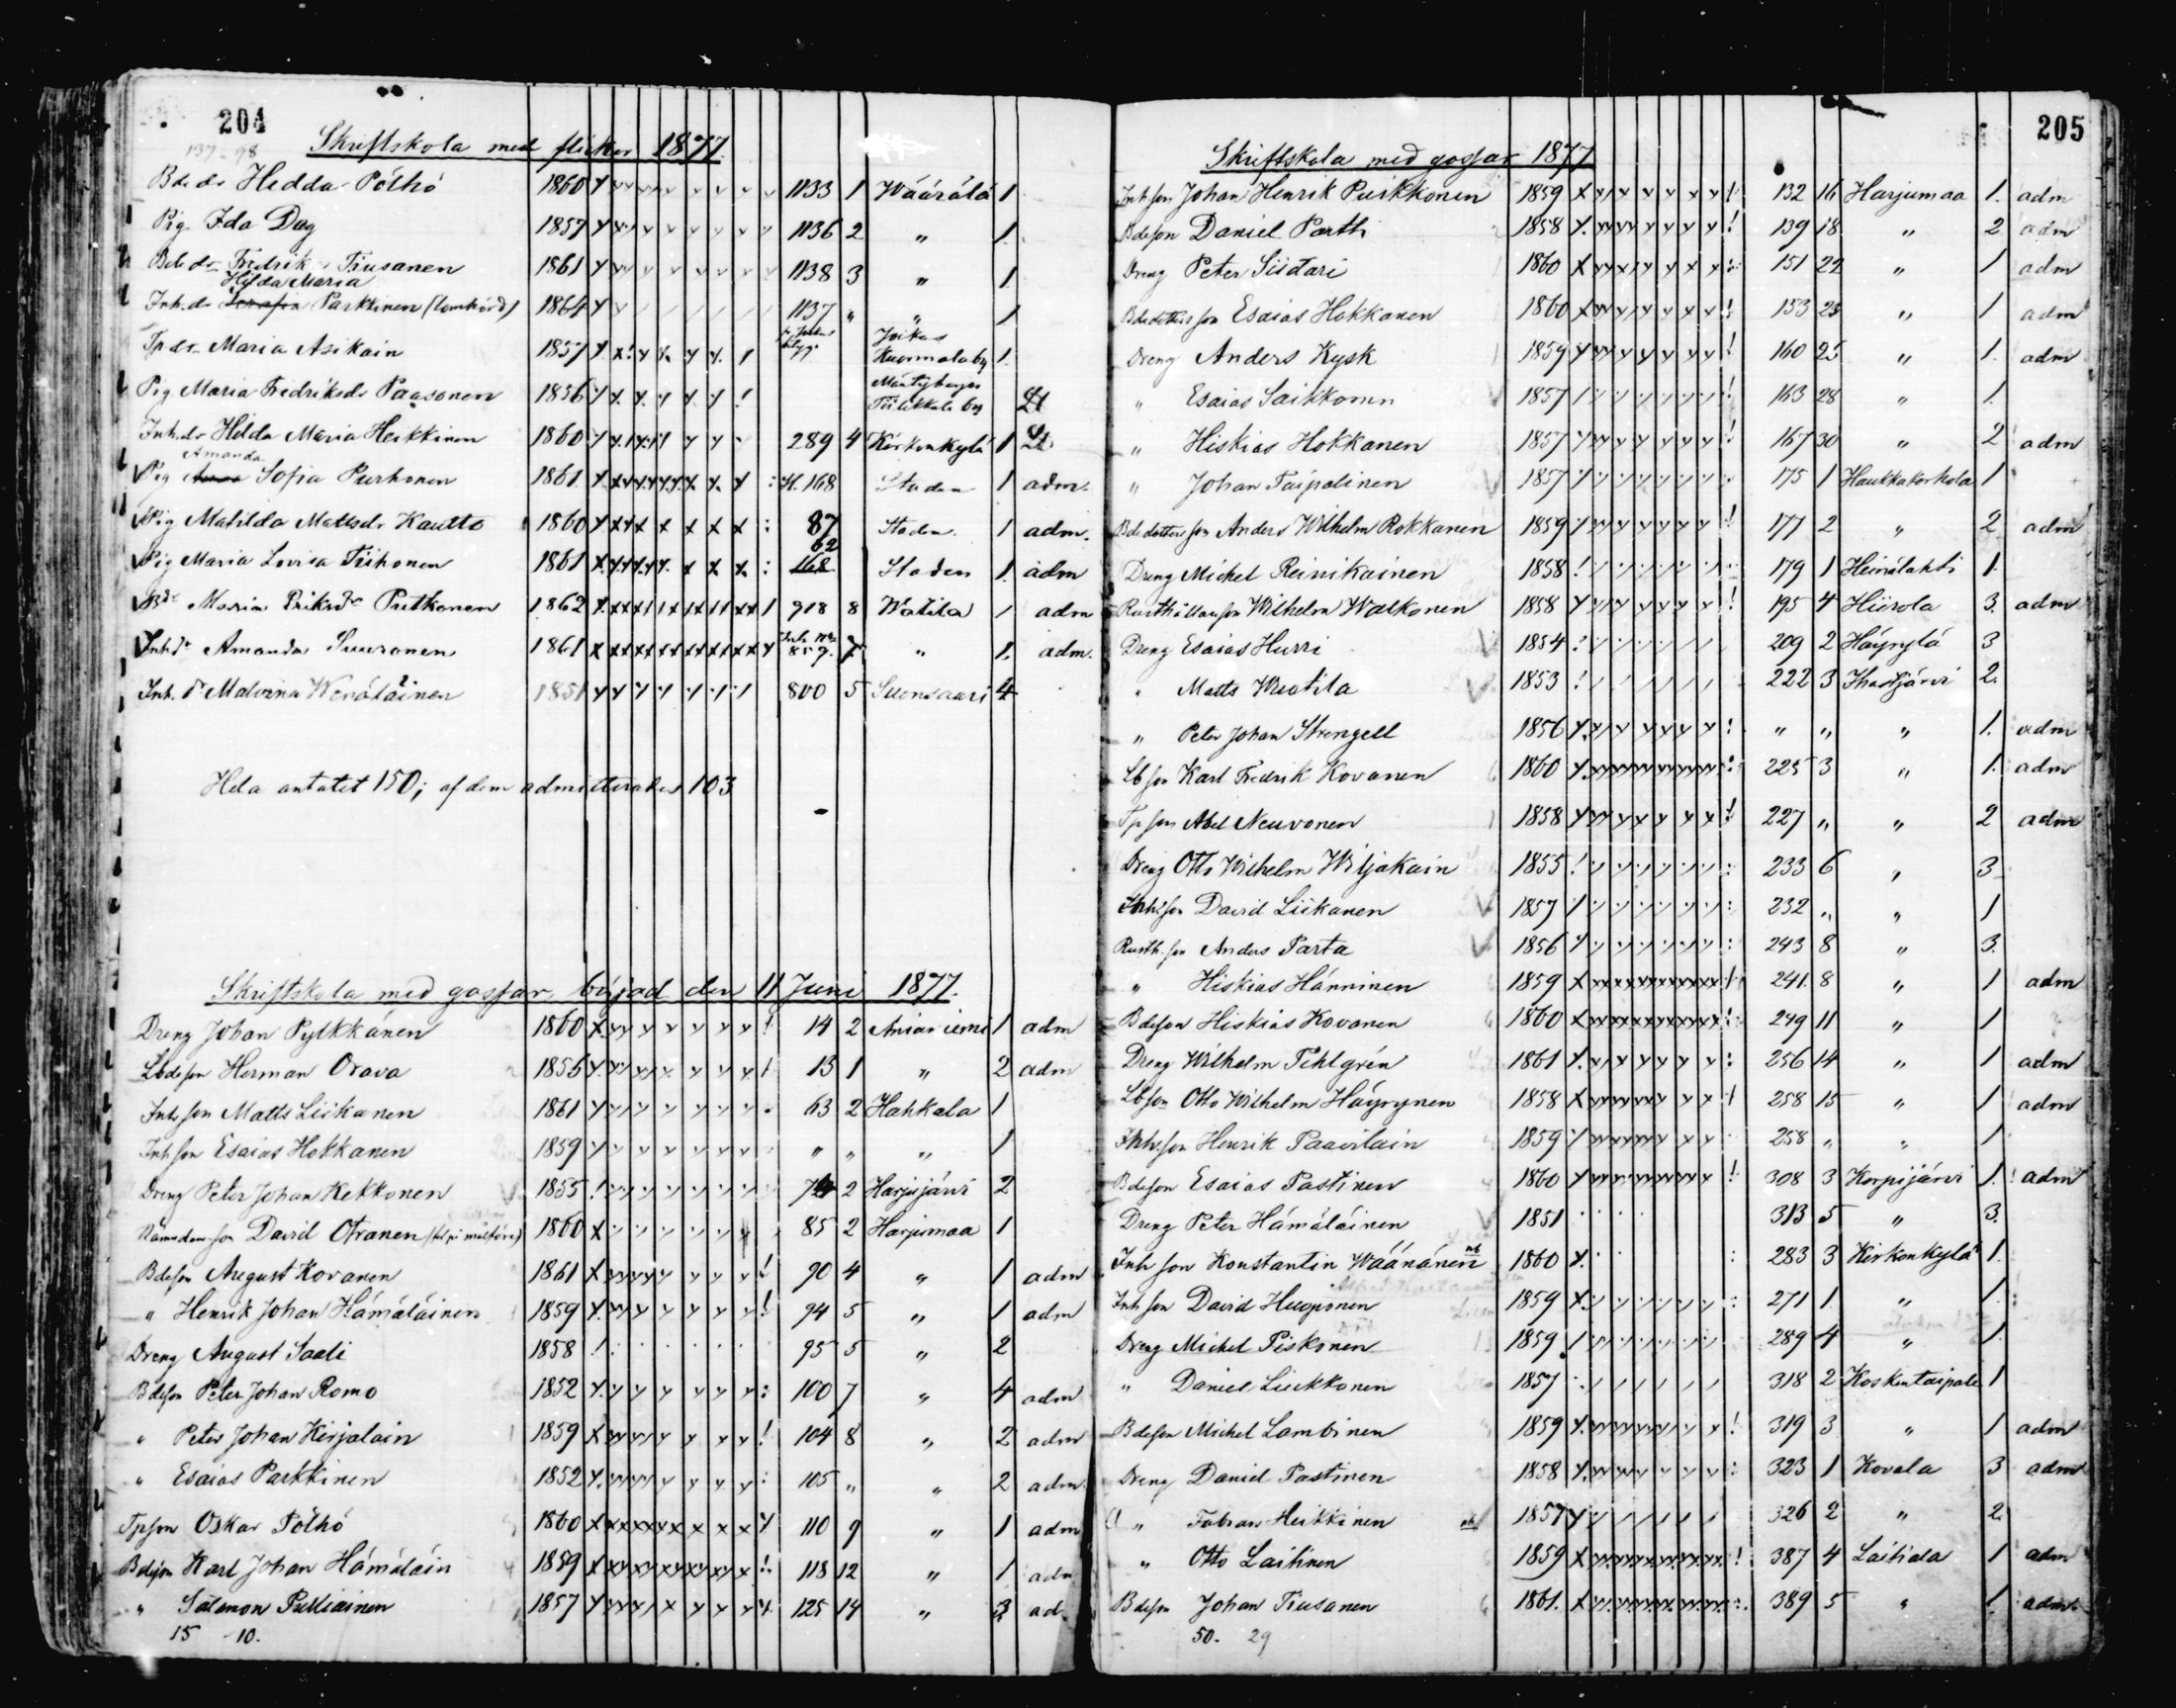 204
137-98
Skriftskola med flickor 1877.
Bde dr Hedda Pöthö 1860 1133 1 Wäärälä 1
Pig. Ida Dag 1857 1136 2 " 1.
Bde dr Fredrik Tiusanen 1861 1138 3 " 1
Hilda Maria
Inh. dr Parkkinen (lomhörd) 1864 1137 " " 1
Tp dr Maria Asikain 1857 Joikas Kuormala by 1.
Pig Maria Fredriksdr Paasonen 1856 Mäntyharju Toilikkala by
Inh. dr Hilda Maria Heikkinen 1860 289 4 Kirkonkylä 1
Amanda
Pig Sofia Purhonen 1861 H. 168 Staden 1 adm.
Pig Matilda Mattsdr Kautto 1860 87 Staden. 1 adm.
62
Pig Maria Lovisa Tiihonen 1861 168 Staden 1. adm
Bdr Maria Eriksdr Putkonen 1862 918 8 Watila 1 adm
Inh dr Amanda Suuronen 1861 859. 7 " 1. adm.
Inh. dr Malvina Wenäläinen 1851 800 5 Suonsaari 4
Hela antalet 150; af dem admitterades 103
Skriftskola med gossar, börjad den 11 Juni 1877.
Dreng Johan Pylkkänen 1860 14 2 Aniariemi 1 adm
Lbdeson Herman Orava 1856 13 1 " 2 adm
Inh. son Matts Liikanen 1861 63 2 Hahkala 1
Inh son Esaias Hokkanen 1859 " " " 1
Dreng Peter Johan Kekkonen 1855 74 2 Harjujärvi 2
Nämndem son David Otranen 1860 85 2 Harjumaa 1
Bdeson August Kovanen 1861 90 4 " 1 adm
" Henrik Johan Hämäläinen 1859 94 5 " 1 adm
Dreng August Saali 1858 95 5 " 2
Bdeson Peter Johan Romo 1852 100 7 " 4 adm
" Peter Johan Kirjalain 1859 104 8 " 2 adm
" Esaias Parkkinen 1852 105 " " 2 adm.
Tpson Oskar Pöthö 1860 110 9 " 1 adm
Bdeson Karl Johan Hämäläin 1859 118 12 " 1 adm
" Salomon Pulliainen 1857 125 14 " 3 ad.
15 10.
205
Skriftskola med gossar 1877
Inh son Johan Henrik Puikkonen 1859 132 16 Harjumaa 1. adm
Bdeson Daniel Partti 1858 139 18 " 2 adm
Dreng Peter Siitari 1860 151 22 " 1 adm
Bdedotters son Esaias Hokkanen 1860 153 23 " 1 adm
Dreng Anders Kysk 1859 160 25 " 1. adm
" Esaias Saikkonen 1857 163 28 " 1.
" Hiskias Hokkanen 1857 167 30 " 2 adm
" Johan Taipalinen 1857 175 1 Haukkakorkola 1
Bdedotter son Anders Wilhelm Rokkanen 1859 177 2 " 2 adm
Dreng Michel Reinikainen 1858 179 1 Heinälahti 1.
Rusthållareson Wilhelm Walkonen 1858 195 4 Hiirola 3. adm
Dreng Esaias Hurri 1854 209 2 Häyrylä 3
" Matts Wuotila 1853 222 3 Ihastjärvi 2.
" Peter Johan Strengell 1856 " " " 1. adm
Lb son Karl Fredrik Kovanen 1860 225 3 " 1. adm
Tp son Abel Neuvonen 1858 227 " " 2 adm
Dreng Otto Wilhelm Wiljakain 1855 233 6 " 3
Inhson David Liikanen 1857 232 " " 1
Rusth. son Anders Parta 1856 243 8 " 3.
" Hiskias Hänninen 1859 241. 8 " 1 adm
Bdeson Hiskias Kovanen 1860 249 11 " 1
Dreng Wilhelm Tihlgrén 1861 256 14 " 1 adm
Lbson Otto Wilhelm Häyrynen 1858 258 15 " 1 adm
Inh.son Henrik Paavilain 1859 258 " " 1
Bdeson Esaias Pastinen 1860 308 3 Korpijärvi 1. adm
Dreng Peter Hämäläinen 1851 313 5 " 3.
Inh son Konstantin Wäänänen 1860 283 3 Kirkonkylä 1.
Inh son David Huoponen 1859 271 1 " 1.
Dreng Michel Piskonen 1859 289 4 " 1.
" Daniel Liukkonen 1857 318 2 Koskentaipale 1
Bdeson Michel Lambinen 1859 319 3 " 1 adm
Dreng Daniel Pastinen 1858 323 1 Kovala 3 adm
" Fabian Heikkinen 1857 326 2 " 2
" Otto Laitinen 1859 387 4 Laitiala 1 adm
Bdeson Johan Tiusanen 1861. 389 5 " 1. adm.
50. 29